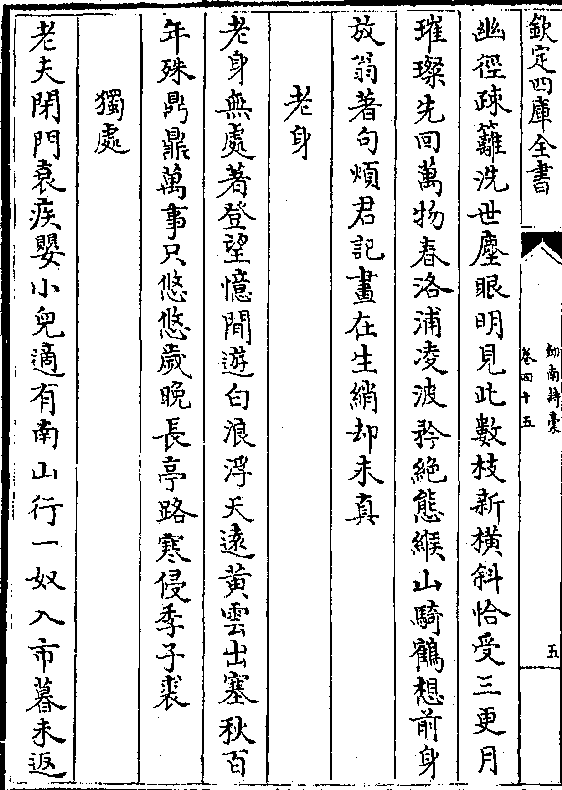 欽定四庫全書
劍南詩稾
卷四十五
五
幽徑疎籬洗世塵眼明見此數枝新橫斜恰受三更月
璀璨先回萬物春洛浦凌波矜絶態緱山騎鶴想前身
放翁著句煩君記畫在生綃却未真
老身
老身無處著登望憶間遊白浪浮天遠黄雲出塞秋百
年殊鼎鼎萬事只悠悠歲晚長亭路寒侵季子裘
獨處
老夫閉門衰疾嬰小兒適有南山行一奴入市暮未返